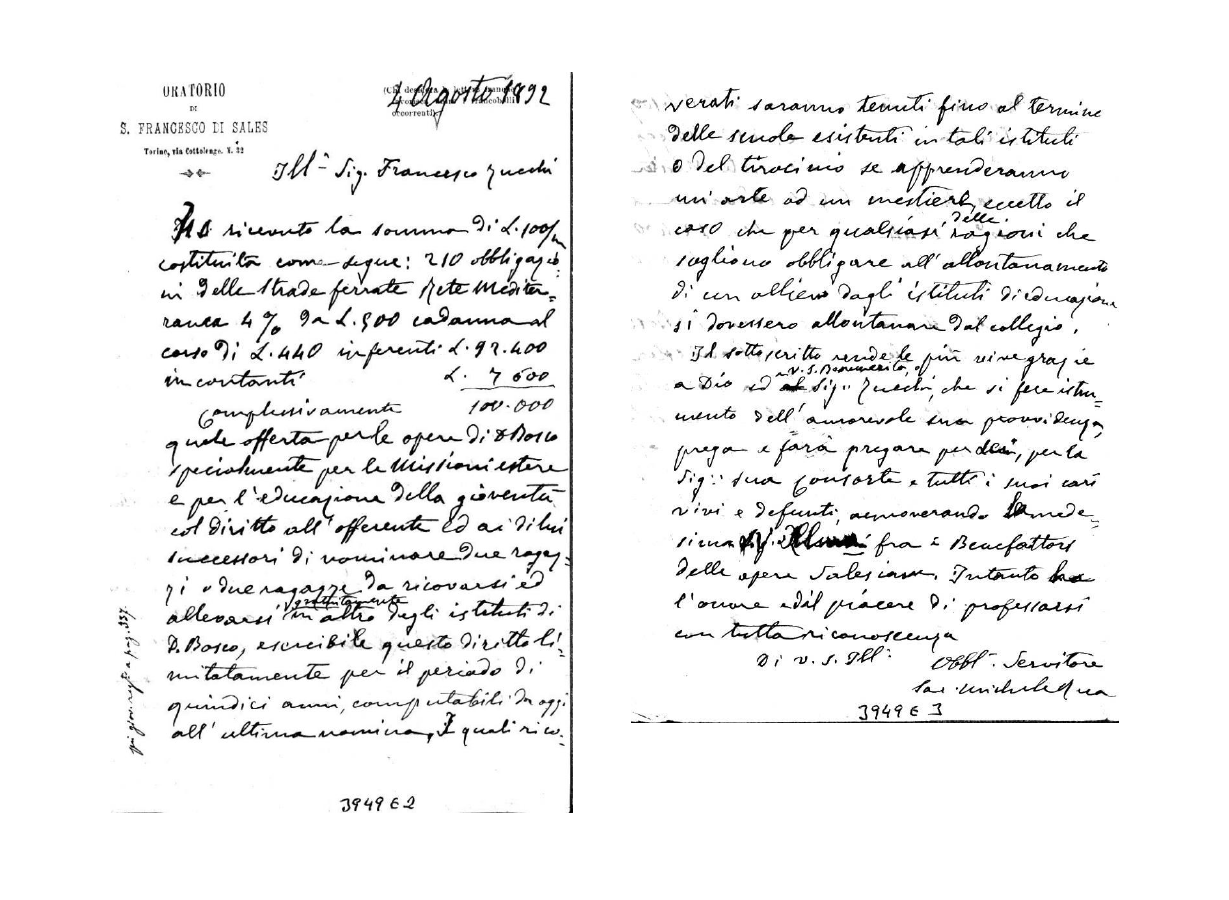 ORATORIO
DI
S. FRANCESCO DI SALES
Torino, via Cottolengo, N. 32
4 Agosto 1892
occorrenti.
Ill.mo Sig. Francesco Zucchi
Ho ricevuto la somma di L. 100/m
costituita come segue: 210 obbligazio-
ni delle Strade ferrate Rete Mediter=
ranea 4% da L. 500 cadauna al
corso di L. 440 inferenti L. 92.400
in contanti L. 7 600
Complessivamente 100.000
quale offerta per le opere di D Bosco
specialmente per le Missioni estere
e per l'educazione della gioventù
col diritto all'offerente ed ai di lui
successori di nominare due ragaz=
zi o due ragazze da ricovarsi ed
gratuitamente
allevarsi in altro degli istituti di
D. Bosco, escibile questo diritto li-
mitatamente per il periodo di
quindici anni, computabili da oggi
all'ultima nomina, I quali rico-
3949 E 2
verati saranno tenuti fino al termine
delle scuole esistenti in tali istituti
o del tirocinio se apprenderanno
un'arte od un mestiere, eccetto il
caso che per qualsiasi delle ragioni che
sogliono obbligare all'allontanamento
di un allievo dagli istituti di educazione
si dovessero allontanare dal collegio.
Il sottoscritto rende le più vive grazie
a V. S. Benemerita,
a Dio ed Sig. Zucchi, che si fece istru=
mento dell'amorevole sua provvidenza,
prega e farà pregare per , per la
Sig.ra sua Consorte e tutti i suoi cari
vivi e defunti, annoverando la mede-
sima fra i Benefattori
delle opere Salesiane. Intanto ho
l'onore ed il piacere di professarsi
con tutta riconoscenza
Di V. S. Ill.ma Obbl.mo Servitore
Sac. Michele Rua
3949 E 3